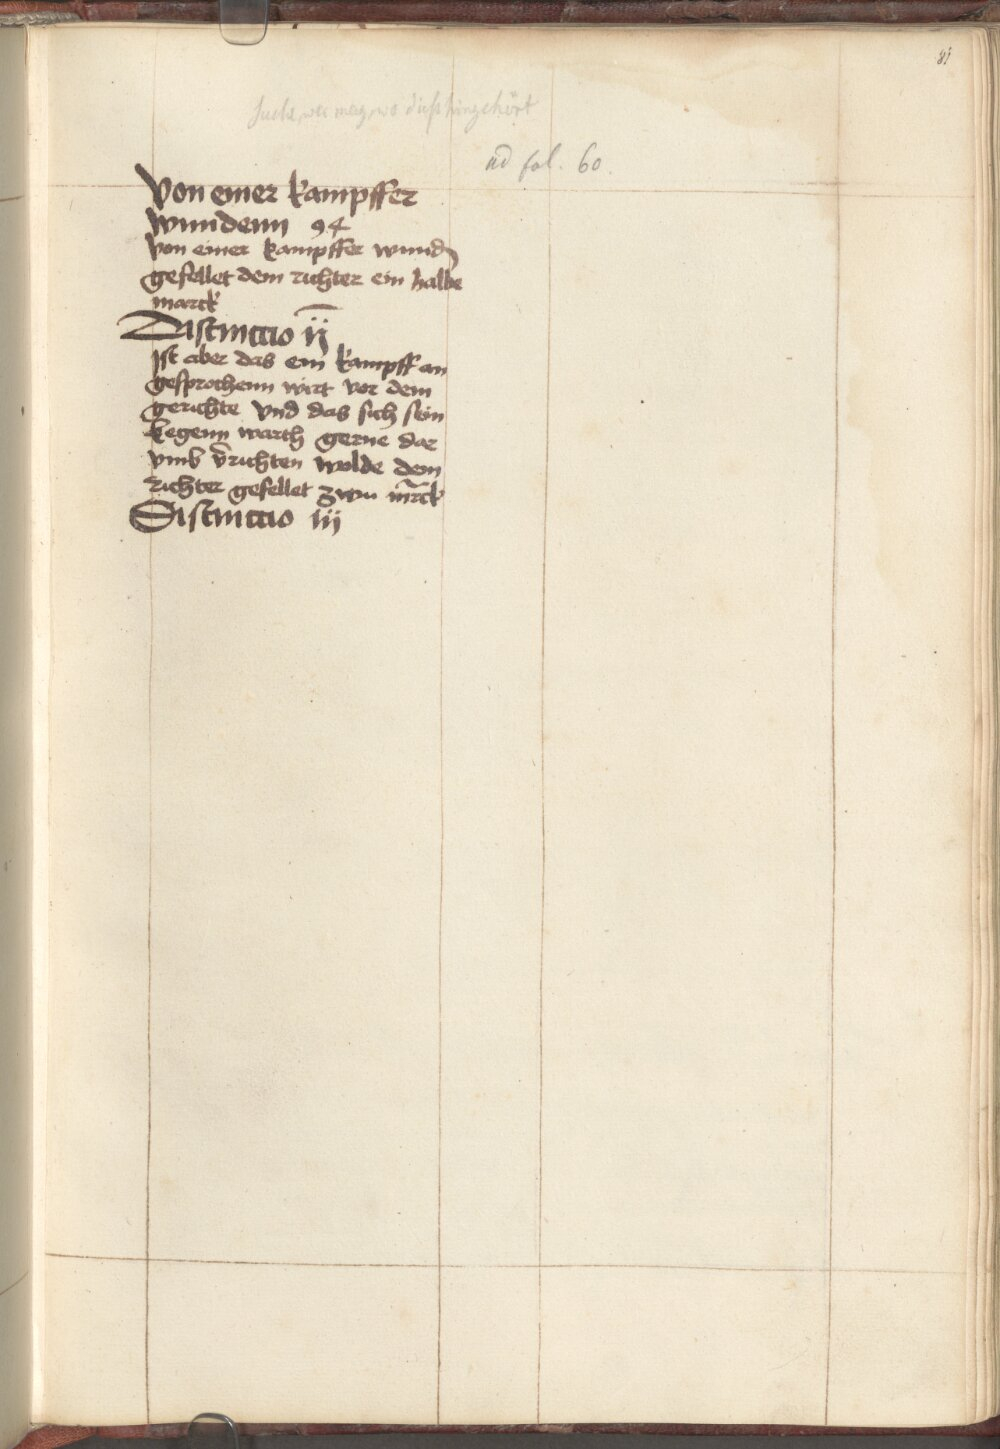 81
Suche, wer mag, wo dieß hingehört
ad fol. 60.
Von einer kampffer
wundenn 94
Von einer kampffer wund
gefellet dem richter ein halbe
marck
Distinctio ij
Ist aber das ein kampff an
gesprochenn wirt vor dem
gerichte vnd das sich sein
kegenn warth gerne dar
vmb v̄richten wolde dem
richter gefellet zwu m̄rck
Distinctio iij